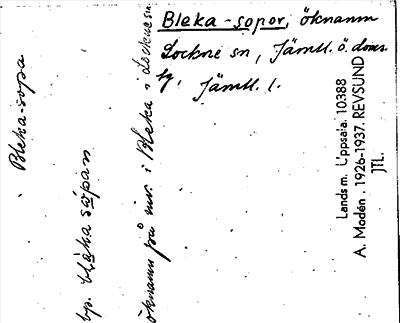 Bleka-sopor, öknamn
Lockne sn, Jämtl. ö. doms.
Jämtl. l.
Bleka-sopa
öknamn på inv. i Bleka i Lockne sn.
Landsm. Uppsala. 10388
A. Modén. 1926-1937. REVSUND
JTL.